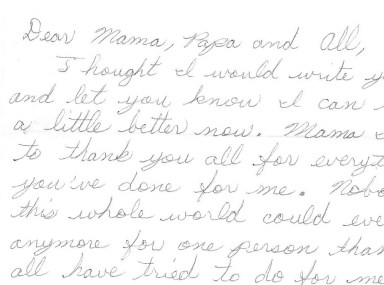 Dear Mama, Papa and All,
I hought I would write y
and let you know I can
a little better now. Mama
to thank you all for everyt
you've done for me. Nobo
this whole world could eve
anymore for one person than
all have tried to do for me